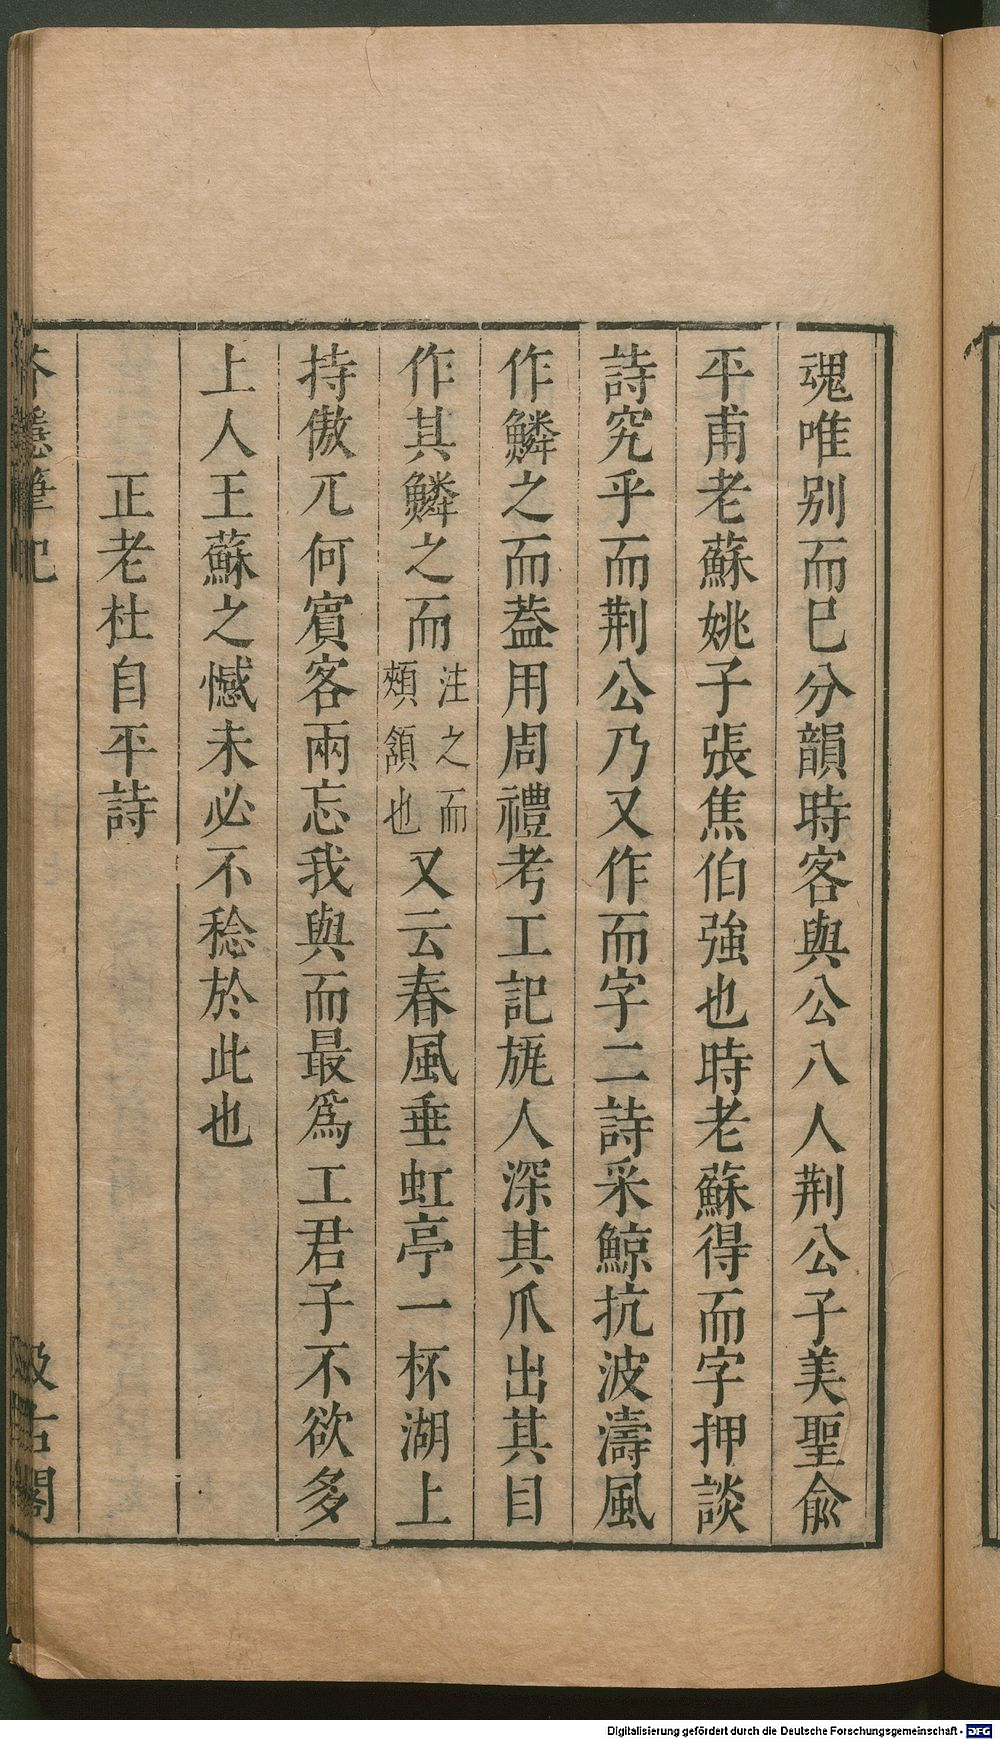 魂唯别而巳分韻時客與公八人荆公子美聖俞
平甫老蘇姚子張焦伯強也時老蘇得而字押談
詩究乎而荆公乃又作而字二詩采鯨抗波濤風
作鱗之而葢用周禮考工記旊人深其爪出其目
作其鱗之而注之而頰頷也又云春風垂虹亭一杯湖上
持傲兀何賔客兩忘我與而最爲工君子不欲多
上人王蘇之憾未必不稔於此也
正老杜自平詩
芥隱筆記
汲古閣
Digitalisierung gefördert durch die Deutsche Forschungsgemeinschaft - DFG